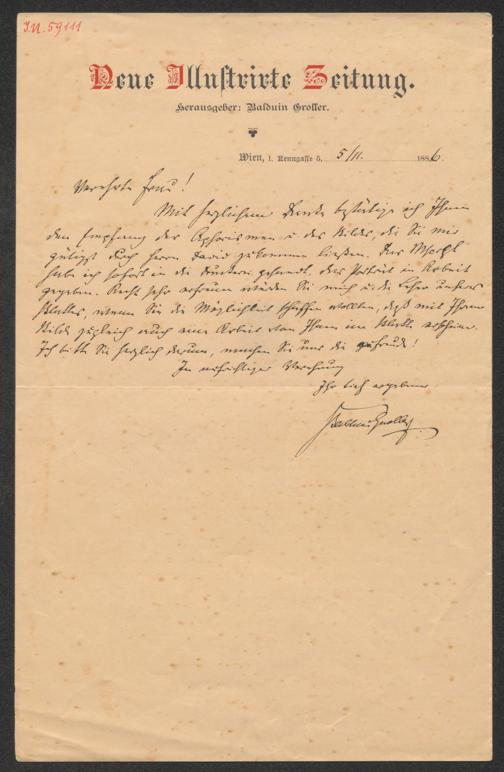 I.N. 59111
Neue Illustrirte Zeitung.
Herausgeber: Balduin Groller.
Wien, I. Renngasse 5, 5/11. 1886.
Verehrte Frau!
Mit herzlichem Danke bestätige ich Ihnen
den Empfang der Aphorismen u des Bildes, die Sie mir
gütigst durch Herrn David zukommen ließen. Das
habe ich sofort in die Druckerei gesandt, das Porträt in Arbeit
gegeben. Recht sehr erfreuen würden Sie mich u die Leser unseres
Blattes, wenn Sie die Möglichkeit schaffen wollten, daß mit Ihrem
Bilde zugleich auch eine Arbeit von Ihnen im Blatte erscheine.
Ich bitte Sie herzlich darum, machen Sie uns die Freude!
In aufrichtiger Verehrung
Ihr tief ergebener
Balduin Groller